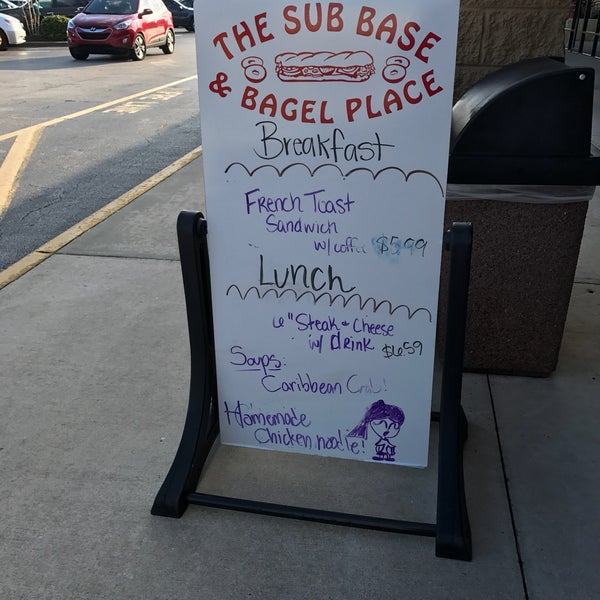 THE SUB BASE
& BAGEL PLACE
Breakfast
French Toast
Sandwich
w/ coffee $5.99
Lunch
6" Steak & Cheese
w/ drink $6.59
Soups:
Caribbean Crab!
Homemade
Chicken noodle!